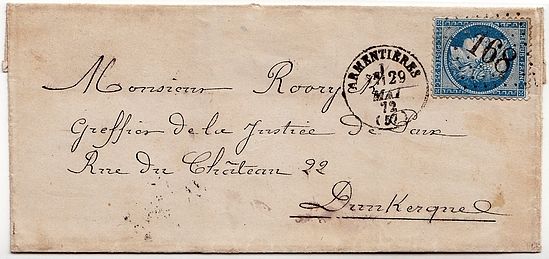 168
ARMENTIÈRES
29
MAI
72
(57)
Monsieur Roory
Greffier de la Justice de Paix
Rue du Château 22
Dunkerque